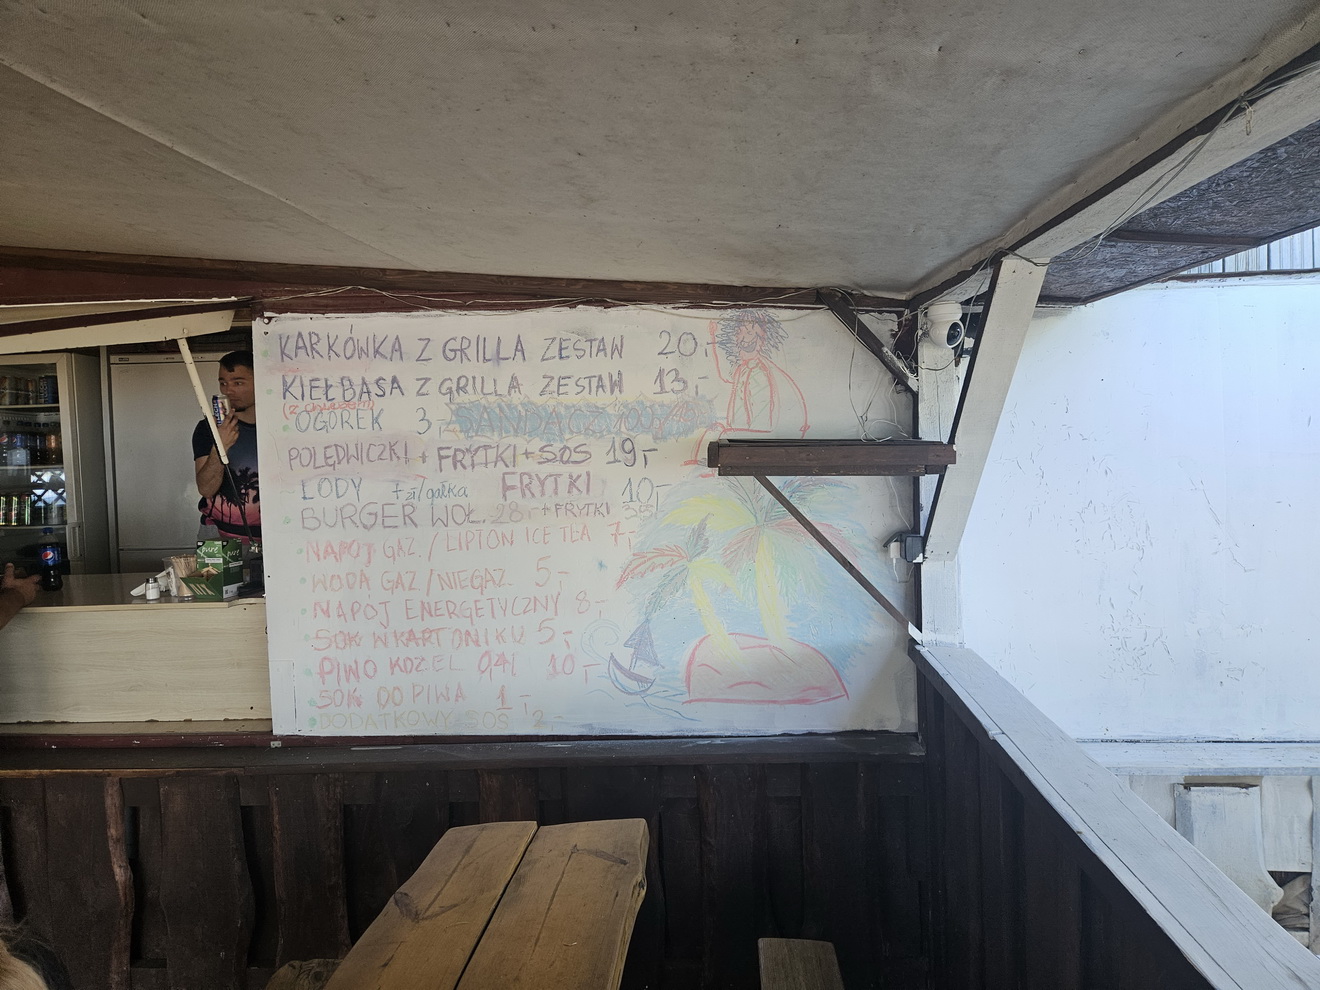 KARKÓWKA Z GRILLA ZESTAW 20,-
KIEŁBASA Z GRILLA ZESTAW 13,-
(z chlebem)
OGÓREK 3,- SANDACZ
POLĘDWICZKI + FRYTKI + SOS 19,-
LODY 7zł/gałka FRYTKI 10,-
BURGER WOŁ. 28,- + FRYTKI
NAPÓJ GAZ. / LIPTON ICE TEA 7,-
WODA GAZ / NIEGAZ. 5,-
NAPÓJ ENERGETYCZNY 8,-
SOK W KARTONIKU 5,-
PIWO KOZEL 0,4l 10,-
SOK DO PIWA 1,-
DODATKOWY SOS 2,-
pure
pure